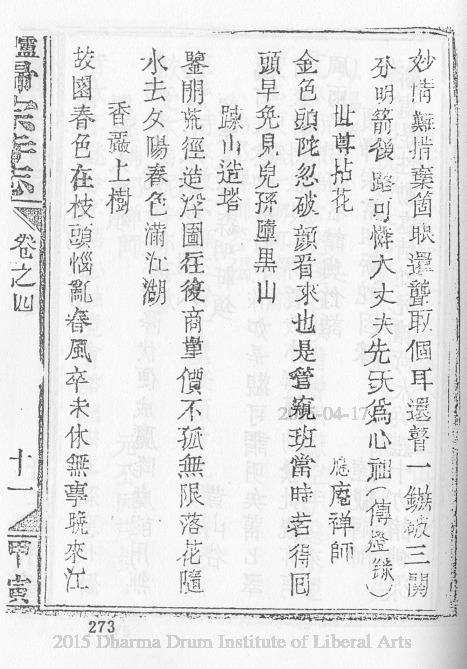 妙情難措棄箇眼還聾取個耳還瞽一鏃破三關
分明箭後路可憐大丈夫先天爲心祖(傳燈錄)
世尊拈花 應庵禪師
金色頭陀忽破顏看來也是管窺班當時若得回
頭早免見兒孫墮黑山
疎山造塔
鑿開荒徑造浮圖往復商量價不孤無限落花隨
水去夕陽春色滿江湖
香嚴上樹
故園春色在枝頭惱亂春風卒未休無事晚來江
歸宗寺志 卷之四 十一 甲寅
-04-17
273
2015 Dharma Drum Institute of Liberal Arts